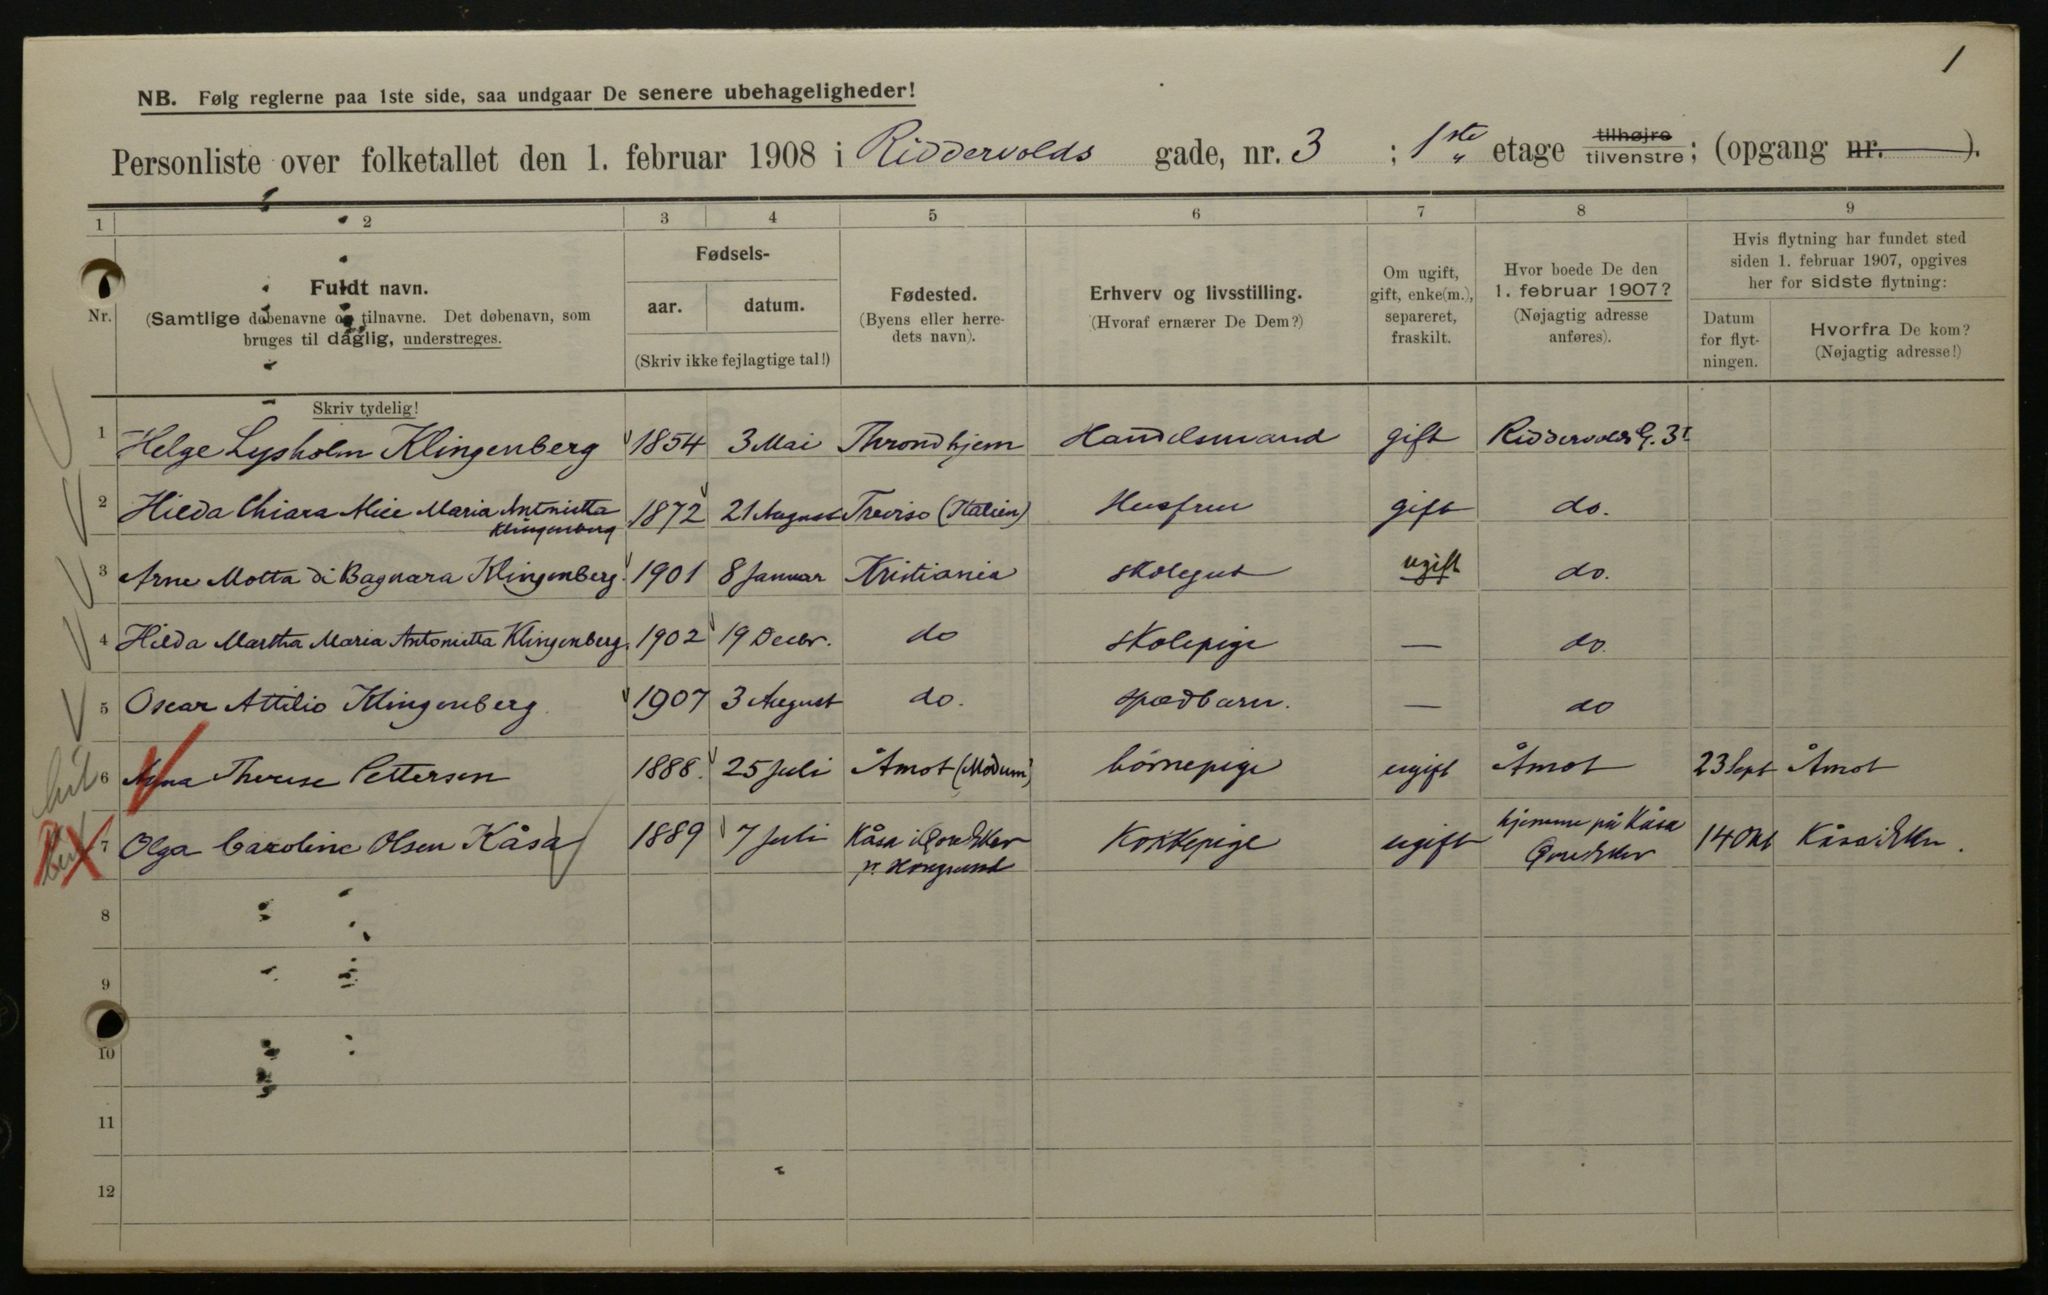 1
NB. Følg reglerne paa 1ste side, saa undgaar De senere ubehageligheder!
Personliste over folketallet den 1. februar 1908 i Riddervolds gade, nr. 3 ; 1ste etage tilhøjre tilvenstre; (opgang nr. ).
1 2 3 4 5 6 7 8 9
Nr.
Fuldt navn.
(Samtlige døbenavne og tilnavne. Det døbenavn, som
bruges til daglig, understreges.
Skriv tydelig!
Fødsels-
aar. datum.
(Skriv ikke fejlagtige tal!)
Fødested.
(Byens eller herre-
dets navn).
Erhverv og livsstilling.
(Hvoraf ernærer De Dem?)
Om ugift,
gift, enke(m.),
separeret,
fraskilt.
Hvor boede De den
1. februar 1907?
(Nøjagtig adresse
anføres).
Hvis flytning har fundet sted
siden 1. februar 1907, opgives
her for sidste flytning:
Datum
for flyt-
ningen.
Hvorfra De kom?
(Nøjagtig adresse!)
1 Helge Lysholm Klingenberg 1854 3 Mai Throndhjem Handelsmand gift Riddervolds G. 3I
2 Hilda Chiara Alice Maria Antonietta Klingenberg 1872 21 August Treviso (Italien) Husfru gift do.
3 Arne Motta di Bagnara Klingenberg. 1901 8 Januar Kristiania skolegut ugift do.
4 Hilda Martha Maria Antonietta Klingenberg. 1902 19 Decbr. do skolepige — do.
5 Oscar Attilio Klingenberg. 1907 3 August do. spædbarn. — do
6 Anna Therese Pettersen 1888. 25 Juli Åmot (Modum) børnepige ugift Åmot 23 Sept Åmot
7 Olga Caroline Olsen Kåsa 1889 7 Juli Kåsa i Øvre Eker pr. Hougsund Kokkepige ugift hjemme på Kåsa Øvre Eker 14 Okt Kåsa i Eker.
8
9
10
11
12